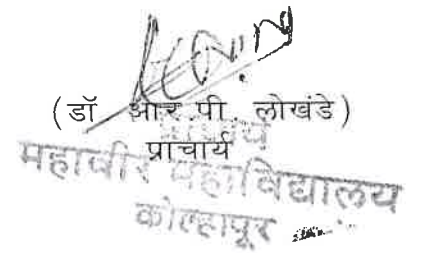 (डॉ आर.पी. लोखंडे)
प्राचार्य
प्राचार्य
महावीर महाविद्यालय
कोल्हापूर